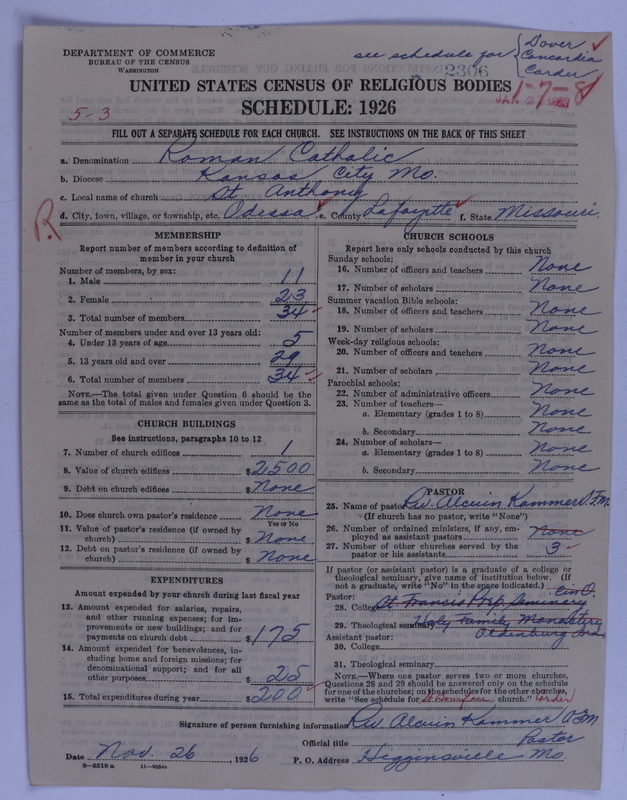 DEPARTMENT OF COMMERCE
BUREAU OF THE CENSUS
WASHINGTON
see schedule for { Dover
Concordia
Corder
2306
1-7-8
UNITED STATES CENSUS OF RELIGIOUS BODIES
SCHEDULE: 1926
5-3
FILL OUT A SEPARATE SCHEDULE FOR EACH CHURCH. SEE INSTRUCTIONS ON THE BACK OF THIS SHEET
a. Denomination Roman Catholic
b. Diocese Kansas City Mo.
c. Local name of church St Anthony
d. City, town, village, or township, etc. Odessa e. County Lafayette f. State Missouri.
R
MEMBERSHIP
Report number of members according to definition of
member in your church
Number of members, by sex:
1. Male 11
2. Female 23
3. Total number of members 34
Number of members under and over 13 years old:
4. Under 13 years of age 5
5. 13 years old and over 29
6. Total number of members 34
NOTE.—The total given under Question 6 should be the
same as the total of males and females given under Question 3.
CHURCH BUILDINGS
See instructions, paragraphs 10 to 12
7. Number of church edifices 1
8. Value of church edifices $2500
9. Debt on church edifices $None
10. Does church own pastor's residence None
Yes or No
11. Value of pastor's residence (if owned by
church) $None
12. Debt on pastor's residence (if owned by
church) $None
EXPENDITURES
Amount expended by your church during last fiscal year
13. Amount expended for salaries, repairs,
and other running expenses; for im-
provements or new buildings; and for
payments on church debt $175
14. Amount expended for benevolences, in-
cluding home and foreign missions; for
denominational support; and for all
other purposes $25
15. Total expenditures during year $200
CHURCH SCHOOLS
Report here only schools conducted by this church
Sunday schools:
16. Number of officers and teachers None
17. Number of scholars None
Summer vacation Bible schools:
18. Number of officers and teachers None
19. Number of scholars None
Week-day religious schools:
20. Number of officers and teachers None
21. Number of scholars None
Parochial schools:
22. Number of administrative officers None
23. Number of teachers—
a. Elementary (grades 1 to 8) None
b. Secondary None
24. Number of scholars—
a. Elementary (grades 1 to 8) None
b. Secondary None
PASTOR
25. Name of pastor Rev Alcuin Kammer O.F.M.
(If church has no pastor, write "None")
26. Number of ordained ministers, if any, em-
ployed as assistant pastors None
27. Number of other churches served by the
pastor or his assistants 3
If pastor (or assistant pastor) is a graduate of a college or
theological seminary, give name of institution below. (If
not a graduate, write "No" in the space indicated.)
Pastor: Cin O.
28. College St Francis Prep Seminary
29. Theological seminary Holy Family Monastery
Oldenburg
Assistant pastor:
30. College
31. Theological seminary
NOTE.—Where one pastor serves two or more churches,
Questions 28 and 29 should be answered only on the schedule
for one of the churches; on the schedules for the other churches,
write "See schedule for church." Corder
Signature of person furnishing information Rev Alcuin Kammer O.F.M.
Official title Pastor
Date Nov. 26, 1926 P. O. Address Higginsville Mo.
8-5518 a